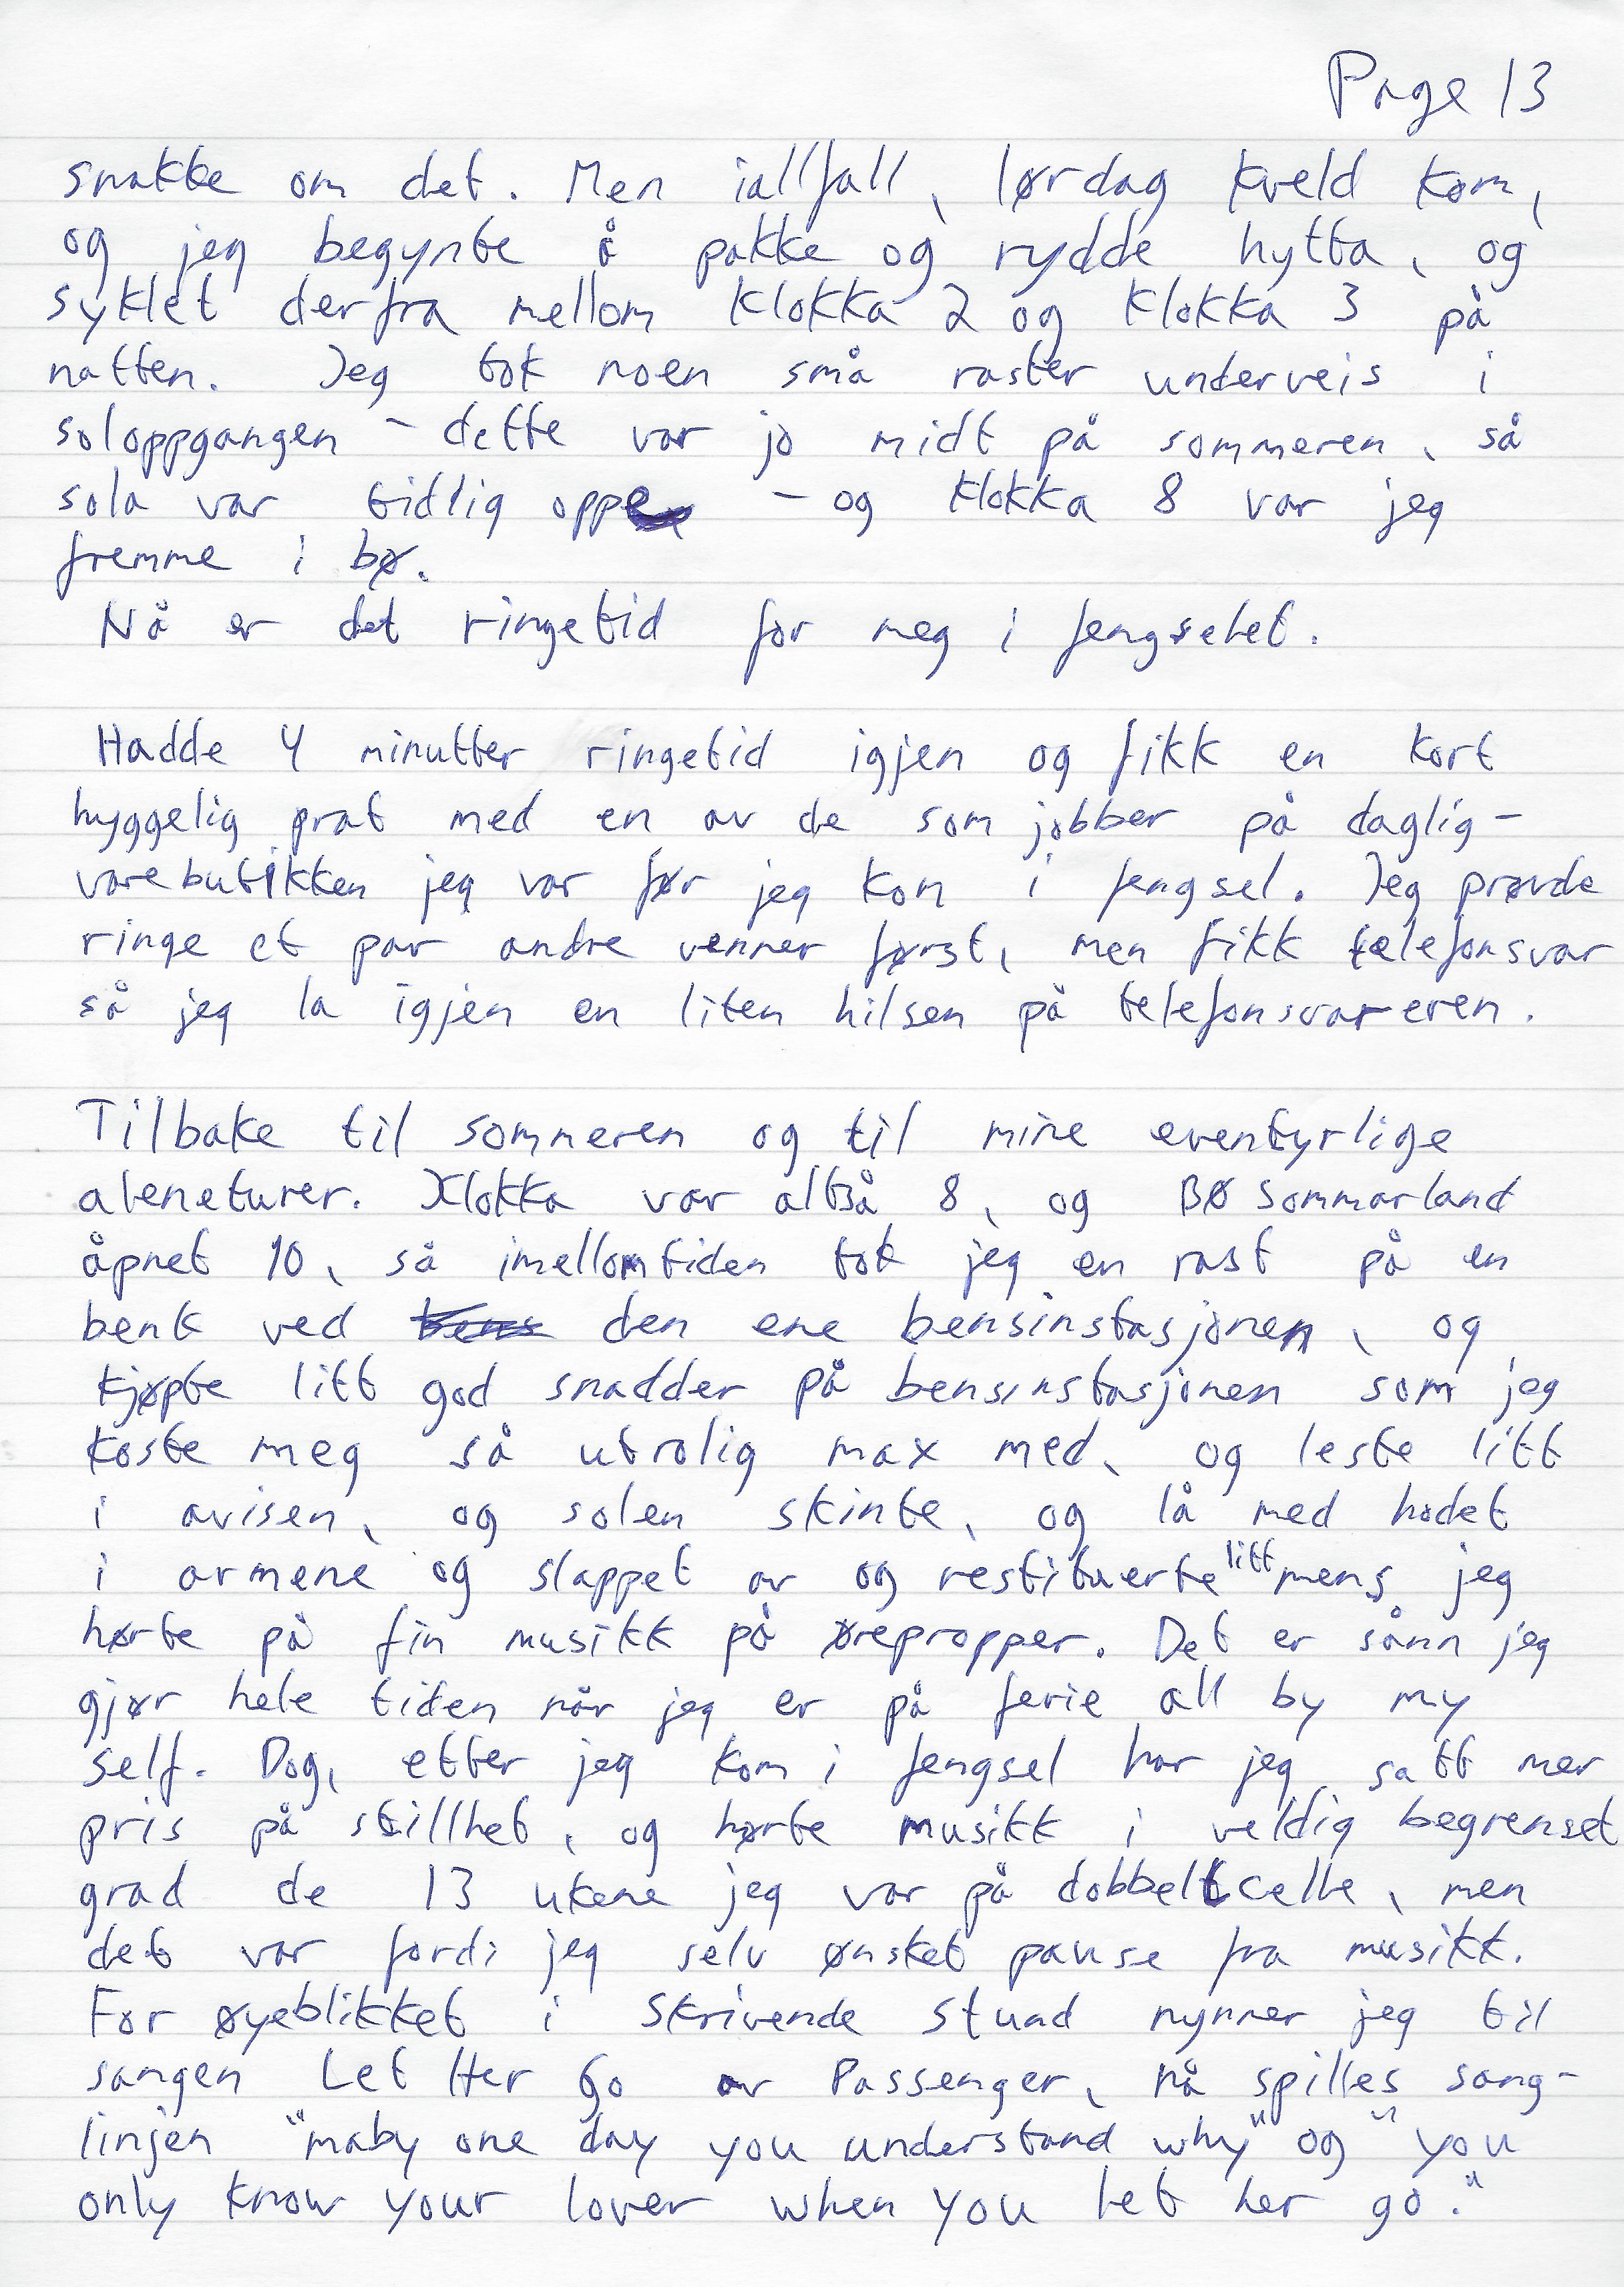 Page 13
snakke om det. Men iallfall, lørdag kveld kom,
og jeg begynte å pakke og rydde hytta, og
syklet derfra mellom klokka 2 og klokka 3 på
natten. Jeg tok noen små raster underveis i
soloppgangen - dette var jo midt på sommeren, så
sola var tidlig oppe - og klokka 8 var jeg
fremme i bø.
Nå er det ringetid for meg i fengselet.
Hadde 4 minutter ringetid igjen og fikk en kort
hyggelig prat med en av de som jobber på daglig-
varebutikken jeg var før jeg kom i fengsel. Jeg prøvde
ringe et par andre venner først, men fikk telefonsvar
så jeg la igjen en liten hilsen på telefonsvareren.
Tilbake til sommeren og til mine eventyrlige
aleneturer. Klokka var altså 8, og Bø Sommarland
åpnet 10, så imellomtiden tok jeg en rast på en
benk ved den ene bensinstasjonen, og
kjøpte litt god snadder på bensinstasjonen som jeg
koste meg så utrolig max med, og leste litt
i avisen, og solen skinte, og lå med hodet
i armene og slappet av og restituerte litt mens jeg
hørte på fin musikk på ørepropper. Det er sånn jeg
gjør hele tiden når jeg er på ferie all by my
self. Dog, etter jeg kom i fengsel har jeg satt mer
pris på stillhet, og hørte musikk i veldig begrenset
grad de 13 ukene jeg var på dobbeltcelle, men
det var fordi jeg selv ønsket pause fra musikk.
For øyeblikket i skrivende stund nynner jeg til
sangen Let Her Go av Passenger, nå spilles sang-
linjen "maby one day you understand why" og "you
only know your lover when you let her go."